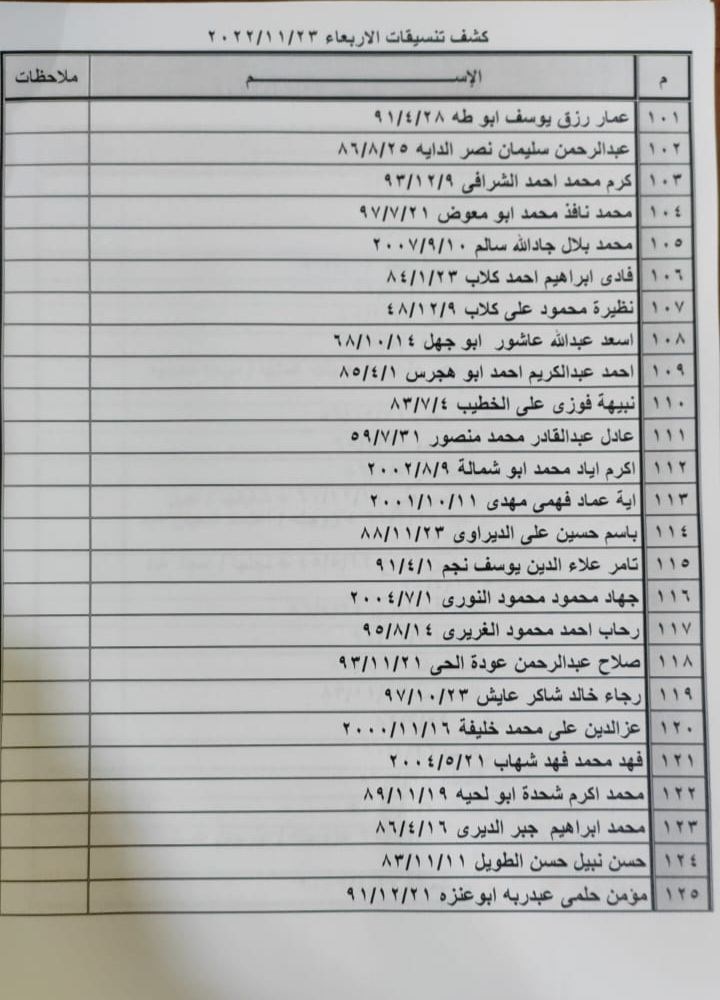 كشف تنسيقات الاربعاء ٢٠٢٢/١١/٢٣
م الإســـم ملاحظات
١٠١ عمار رزق يوسف ابو طه ٩١/٤/٢٨
١٠٢ عبدالرحمن سليمان نصر الدايه ٨٦/٨/٢٥
١٠٣ كرم محمد احمد الشرافى ٩٣/١٢/٩
١٠٤ محمد نافذ محمد ابو معوض ٩٧/٧/٢١
١٠٥ محمد بلال جادالله سالم ٢٠٠٧/٩/١٠
١٠٦ فادى ابراهيم احمد كلاب ٨٤/١/٢٣
١٠٧ نظيرة محمود على كلاب ٤٨/١٢/٩
١٠٨ اسعد عبدالله عاشور ابو جهل ٦٨/١٠/١٤
١٠٩ احمد عبدالكريم احمد ابو هجرس ٨٥/٤/١
١١٠ نبيهة فوزى على الخطيب ٨٣/٧/٤
١١١ عادل عبدالقادر محمد منصور ٥٩/٧/٣١
١١٢ اكرم اياد محمد ابو شمالة ٢٠٠٢/٨/٩
١١٣ اية عماد فهمى مهدى ٢٠٠١/١٠/١١
١١٤ باسم حسين على الديراوى ٨٨/١١/٢٣
١١٥ تامر علاء الدين يوسف نجم ٩١/٤/١
١١٦ جهاد محمود محمود النورى ٢٠٠٤/٧/١
١١٧ رحاب احمد محمود الغريرى ٩٥/٨/١٤
١١٨ صلاح عبدالرحمن عودة الحى ٩٣/١١/٢١
١١٩ رجاء خالد شاكر عايش ٩٧/١٠/٢٣
١٢٠ عزالدين على محمد خليفة ٢٠٠٠/١١/١٦
١٢١ فهد محمد فهد شهاب ٢٠٠٤/٥/٢١
١٢٢ محمد اكرم شحدة ابو لحيه ٨٩/١١/١٩
١٢٣ محمد ابراهيم جبر الديرى ٨٦/٤/١٦
١٢٤ حسن نبيل حسن الطويل ٨٣/١١/١١
١٢٥ مؤمن حلمى عبدربه ابوعنزه ٩١/١٢/٢١